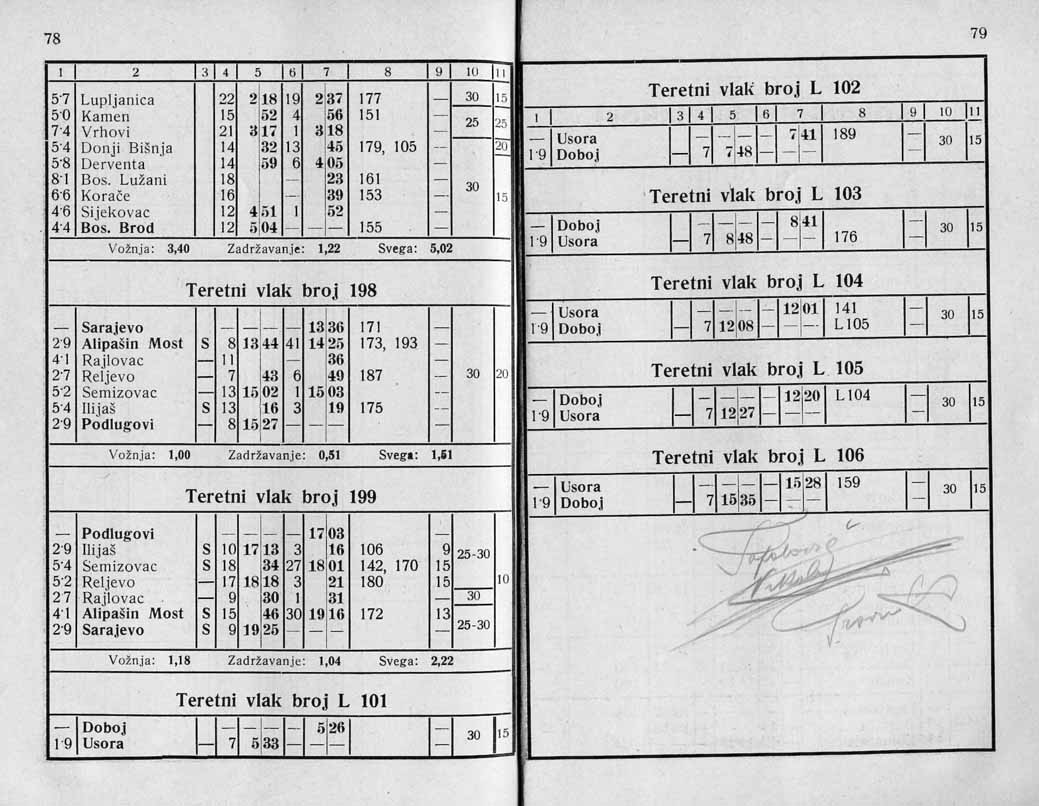 78
1 2 3 4 5 6 7 8 9 10 11
5·7 Lupljanica 22 2 18 19 2 37 177 — 30 15
5·0 Kamen 15 52 4 56 151 — 25 25
7·4 Vrhovi 21 3 17 1 3 18 —
5·4 Donji Bišnja 14 32 13 45 179, 105 — 20
5·8 Derventa 14 59 6 4 05 —
8·1 Bos. Lužani 18 — 23 161 — 30
6·6 Korače 16 — 39 153 — 15
4·6 Sijekovac 12 4 51 1 52 —
4·4 Bos. Brod 12 5 04 — — — 155 —
Vožnja: 3,40 Zadržavanje: 1,22 Svega: 5,02
Teretni vlak broj 198
— Sarajevo — — — — 13 36 171 —
2·9 Alipašin Most S 8 13 44 41 14 25 173, 193 —
4·1 Rajlovac — 11 — 36 —
2·7 Reljevo — 7 43 6 49 187 — 30 20
5·2 Semizovac — 13 15 02 1 15 03 —
5·4 Ilijaš S 13 16 3 19 175 —
2·9 Podlugovi — 8 15 27 — — — —
Vožnja: 1,00 Zadržavanje: 0,51 Svega: 1,51
Teretni vlak broj 199
— Podlugovi — — — — 17 03 —
2·9 Ilijaš S 10 17 13 3 16 106 9 25-30
5·4 Semizovac S 18 34 27 18 01 142, 170 15
5·2 Reljevo — 17 18 18 3 21 180 15 10
2 7 Rajlovac — 9 30 1 31 30
4·1 Alipašin Most S 15 46 30 19 16 172 13
2·9 Sarajevo S 9 19 25 — — — 25-30
Vožnja: 1,18 Zadržavanje: 1,04 Svega: 2,22
Teretni vlak broj L 101
— Doboj — — — — 5 26 —
1·9 Usora — 7 5 33 — — — — 30 15
79
Teretni vlak broj L 102
1 2 3 4 5 6 7 8 9 10 11
— Usora — — — — 7 41 189 — 30 15
1·9 Doboj — 7 7 48 — — — —
Teretni vlak broj L 103
— Doboj — — — — 8 41 — 30 15
1·9 Usora — 7 8 48 — — — 176 —
Teretni vlak broj L 104
— Usora — — — — 12 01 141 — 30 15
1·9 Doboj — 7 12 08 — — — L 105 —
Teretni vlak broj L 105
— Doboj — — — — 12 20 L 104 — 30 15
1·9 Usora — 7 12 27 — — — —
Teretni vlak broj L 106
— Usora — — — — 15 28 159 — 30 15
1·9 Doboj — 7 15 35 — — — —